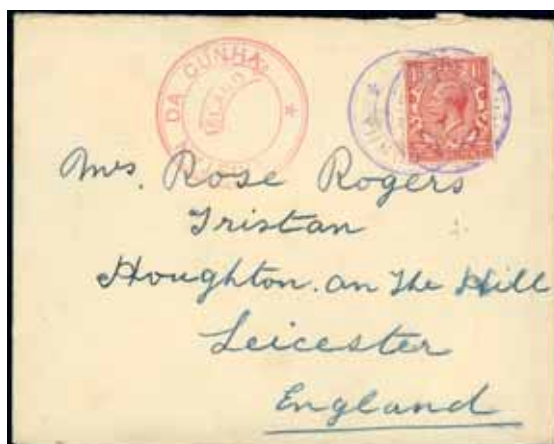 DA CUNHA
ISLAND
Mrs. Rose Rogers
Tristan
Houghton. on The Hill
Leicester
England